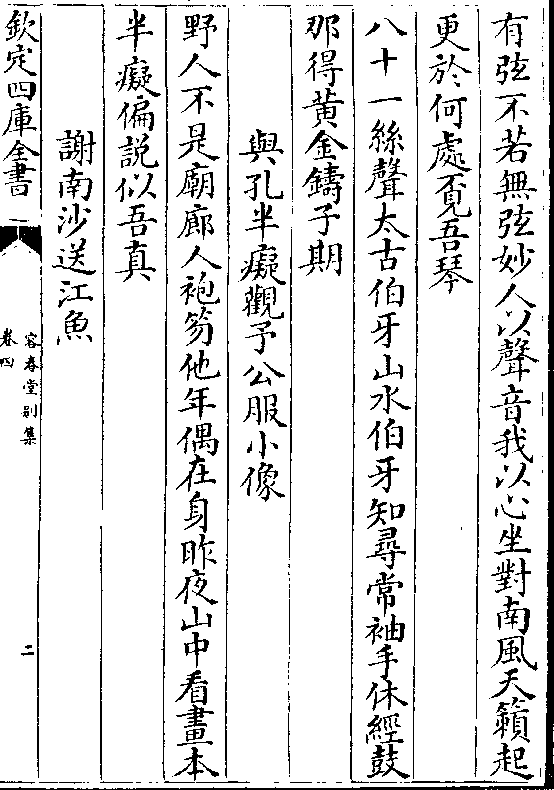 有弦不若無弦妙人以聲音我以心坐對南風天籟起
更於何處覓吾琴
八十一絲聲太古伯牙山水伯牙知尋常袖手休經鼓
那得黄金鑄子期
與孔半癡觀予公服小像
野人不是廟廊人袍笏他年偶在身昨夜山中看畫本
半癡偏説似吾真
謝南沙送江魚
欽定四庫全書
容春堂别集
卷四
二